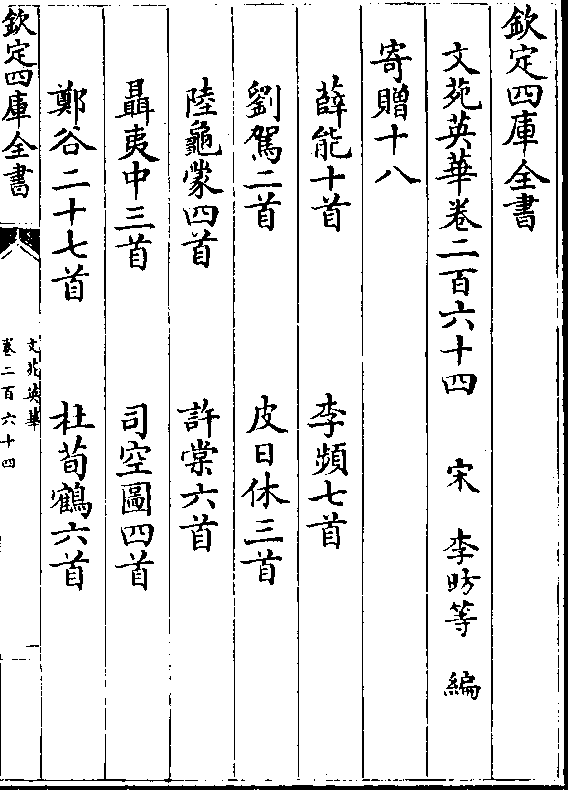 欽定四庫全書
文苑英華卷二百六十四 宋 李昉等 編
寄贈十八
薛能十首 李頻七首
劉駕二首 皮日休三首
陸龜蒙四首 許棠六首
聶夷中三首 司空圖四首
鄭谷二十七首 杜荀鶴六首
欽定四庫全書
文苑英華
卷二百六十四